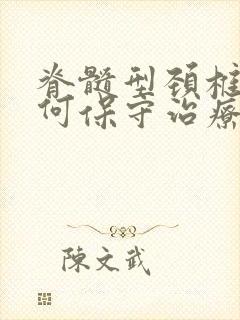 脊髓型颈椎
何保守治療
陳文武